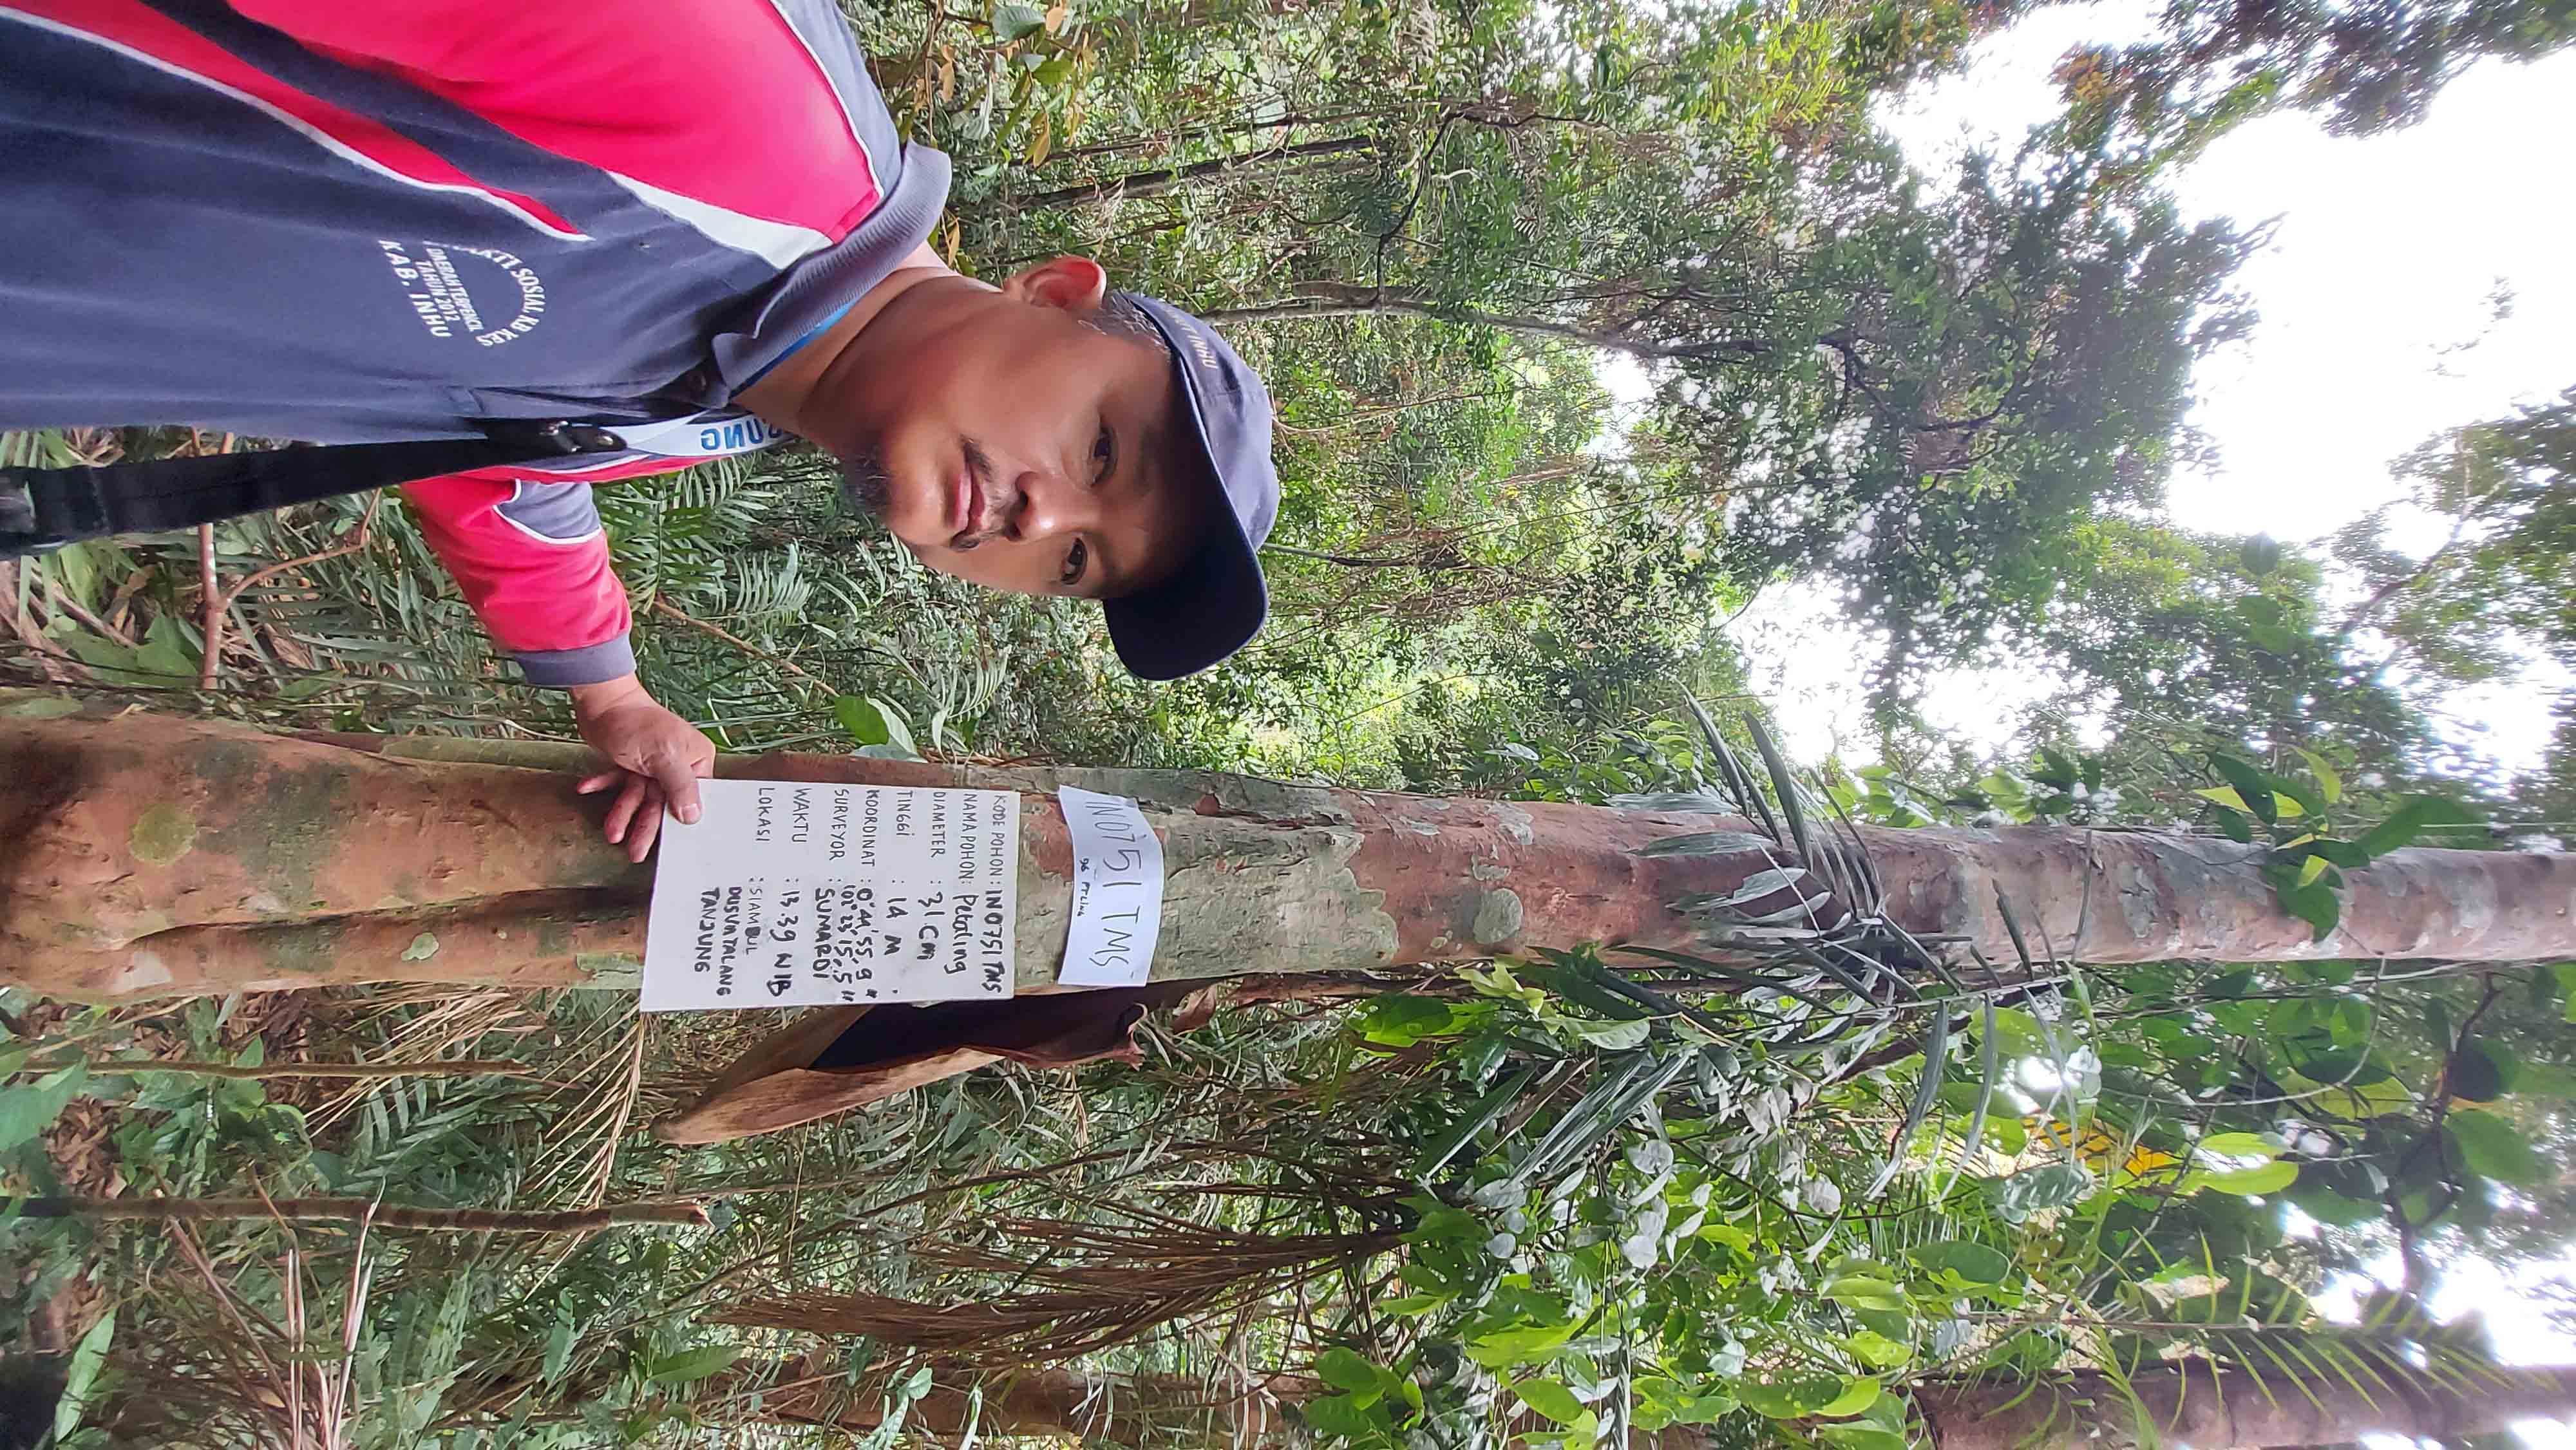 IN0751 TMS
96 PTLING
KODE POHON : IN0751 TMS
NAMA POHON : Petaling
DIAMETER : 31 cm
TINGGI : 14 M
KOORDINAT : 0°44'55,9"
102°23'15,5"
SURVEYOR : SUMARDI
WAKTU : 13.39 WIB
LOKASI : SIAMBUL
DUSUN TALANG
TANJUNG
INHU
SOSIAL KB KES
DAERAH TERPENCIL
TAHUN 2012
KAB. INHU